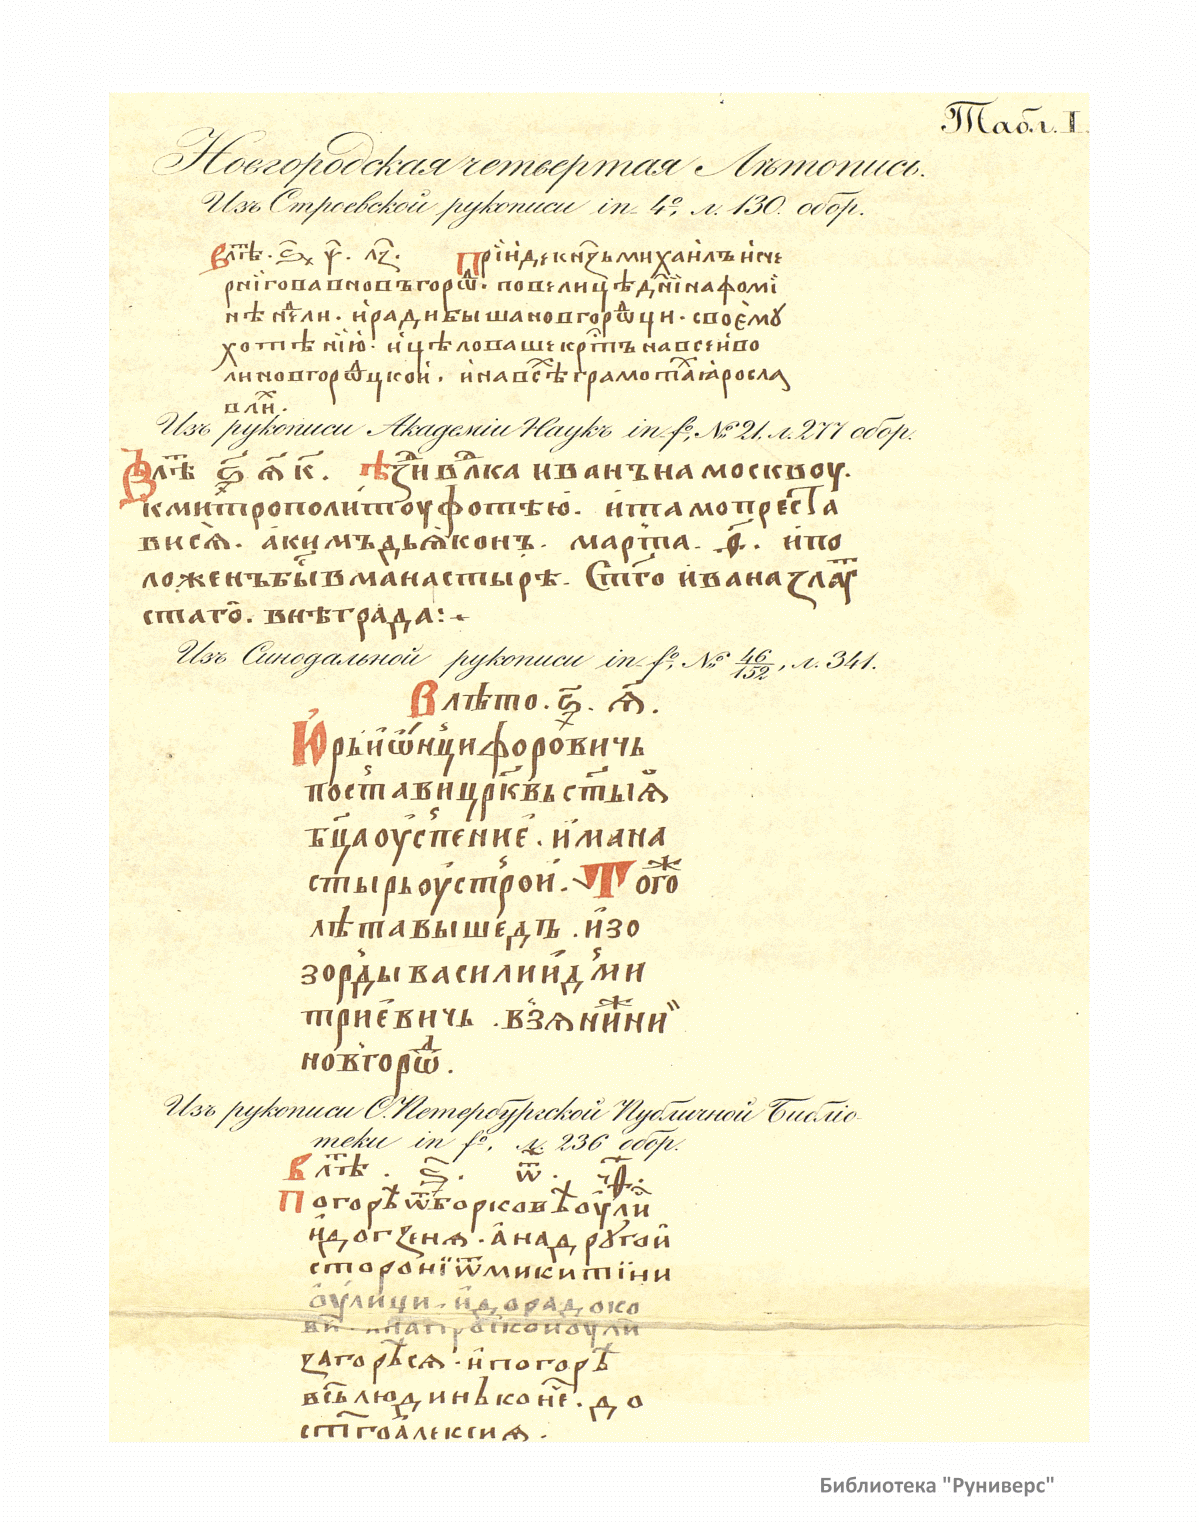 Табл. I.
Новгородская четвертая Лѣтопись.
Изъ Строевской рукописи in 4º, л. 130. обор.
В лⷮѣ · ҂ѕ҃ · ѱ҃ · лз҃ · Прїиде кнѧⷥь михаилъ исче
рнїгова в новъгорѡⷣ · по велицѣ дн҃ї на фомї
нѣ нⷣели · и ради быша новгорѡⷣци · своемꙋ
хотѣнїю · и цѣловаше крⷭтъ на всеи во
ли новгорѡⷣцкои · и на всѣⷯ грамотаⷯ ꙗросла
влиⷯ ·
Изъ рукописи Академіи Наукъ in fº, № 21, л. 277 обор.
В лⷮѣ ҂ѕ҃ ѧ҃ к҃ · ѣзди влⷣка иванъ на москвоу ·
к митрополитоу фотѣю · и тамо преста
висѧ · акимъ дьѧконъ · марта · и по
ложенъ быⷭ в манастырѣ · Ст҃го ивана злаⷮу
стаго · внѣ града :
Изъ Синодальной рукописи in fº, № 46/152, л. 341.
В лѣто · ҂ѕ҃ · ѧ҃ ·
Юрьи ѡнцифоровичь
постави црк҃вь ст҃ыѧ
бц҃а оуспение · и мана
стырь оустрои · Тогоⷤ
лѣта вышедъ · изо
зорды василии дми
триевичь · взѧ нижнии
новъгорѡⷣ ·
Изъ рукописи С. Петербургской Публичной Библіо-
теки in fº, л. 236 обор.
В лⷮѣ · ҂ѕ҃ ·
Погорѣ ѿ борковѣ оули
и до гзенѧ · а на другои
сторонї ѿ микитїни
оулици · и до радоко
ви
загорѣсѧ · и погорѣ
всь людинь конец · до
ст҃го алексиѧ ·
Библиотека "Руниверс"